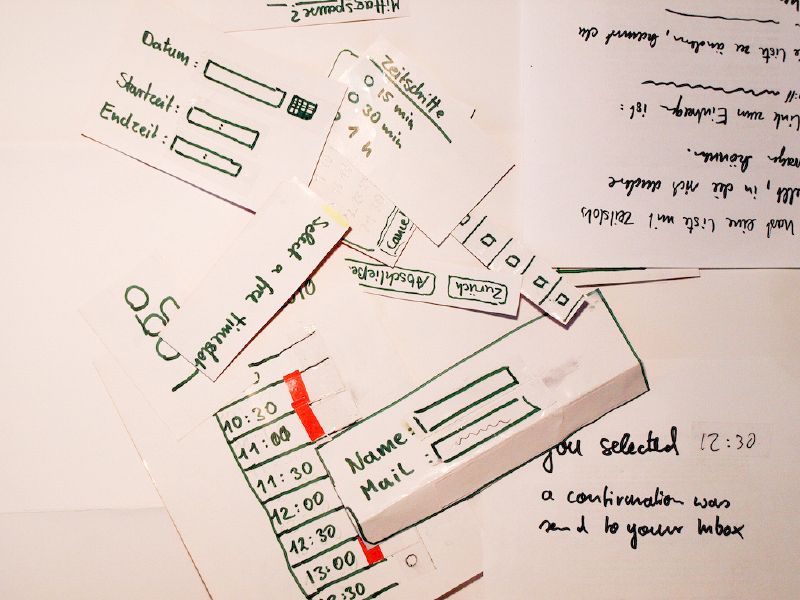 Mittagspause?
Datum:
Startzeit:
Endzeit:
Zeitschritte
15 min
30 min
1 h
Cancel
Select a free timeslot
Zurück
Abschließe
Liste zu ändern, kannst du
Link zum Eintragen ist:
können.
in die sich andere
eine Liste mit Zeitslots
10:30
11:00
11:30
12:00
12:30
13:00
Name:
Mail:
you selected 12:30
a confirmation was
send to your Inbox